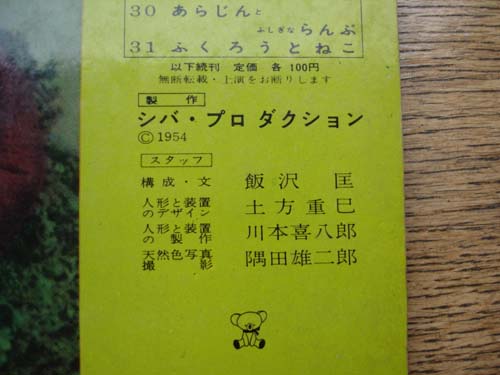 30 あらじんと
ふしぎならんぷ
31 ふくろうとねこ
以下続刊 定価 各100円
無断転載・上演をお断りします
製作
シバ・プロダクション
© 1954
スタッフ
構成・文 飯沢 匡
人形と装置
のデザイン 土方重巳
人形と装置
の製作 川本喜八郎
天然色写真
撮影 隅田雄二郎